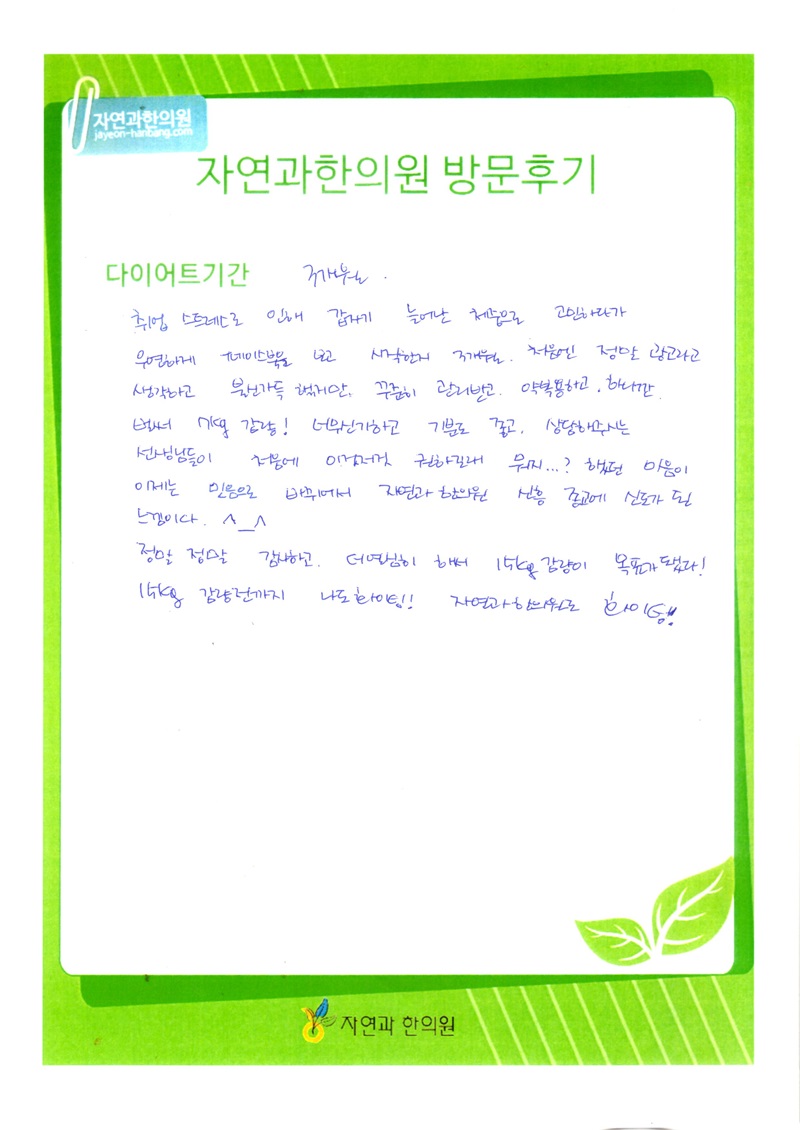 자연과한의원
jayeon-hanbang.com
자연과한의원 방문후기
다이어트기간 3개월.
취업 스트레스로 인해 갑자기 늘어난 체중으로 고민하다가
우연하게 페이스북을 보고 시작한지 3개월. 처음엔 정말 광고라고
생각하고 불신가득 했지만, 꾸준히 관리받고. 약복용하고. 하니깐
벌써 7kg 감량! 너무신기하고 기분도 좋고, 상담해주시는
선생님들이 처음에 이것저것 권하길래 뭐지...? 했던 마음이
이제는 믿음으로 바뀌어서 자연과한의원 신흥 종교에 신도가 된
느낌이다. ^__^
정말 정말 감사하고. 더열심히 해서 15kg감량이 목표가 됐다!
15kg 감량전까지 나도화이팅!! 자연과한의원도 화이팅!!
자연과 한의원